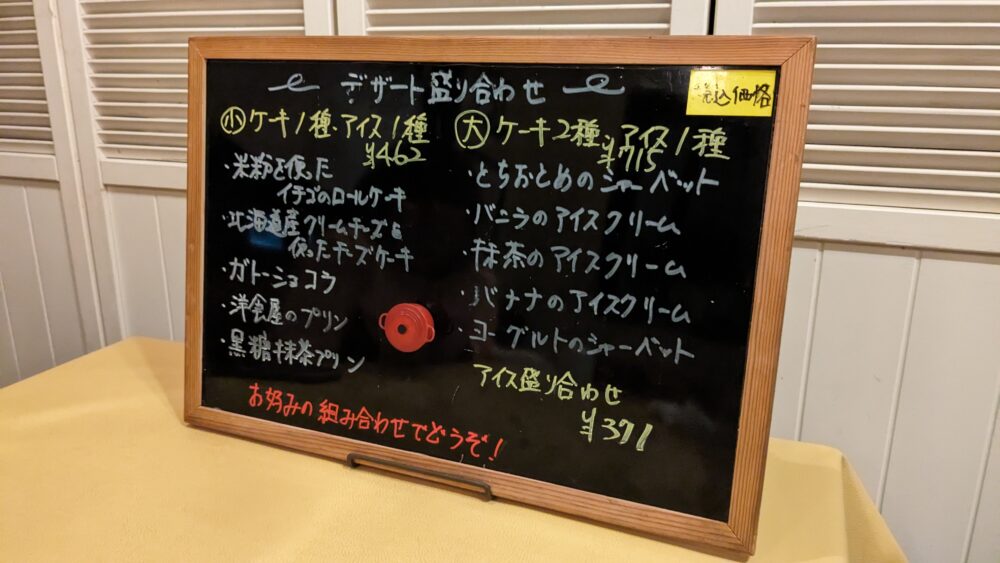 デザート盛り合わせ
税込価格
小 ケーキ1種・アイス1種
¥462
大 ケーキ2種・アイス1種
¥715
・米粉を使った
イチゴのロールケーキ
・北海道産クリームチーズを
使ったチーズケーキ
・ガトーショコラ
・洋食屋のプリン
・黒糖抹茶プリン
・とちおとめのシャーベット
・バニラのアイスクリーム
・抹茶のアイスクリーム
・バナナのアイスクリーム
・ヨーグルトのシャーベット
アイス盛り合わせ
¥371
お好みの組み合わせでどうぞ!